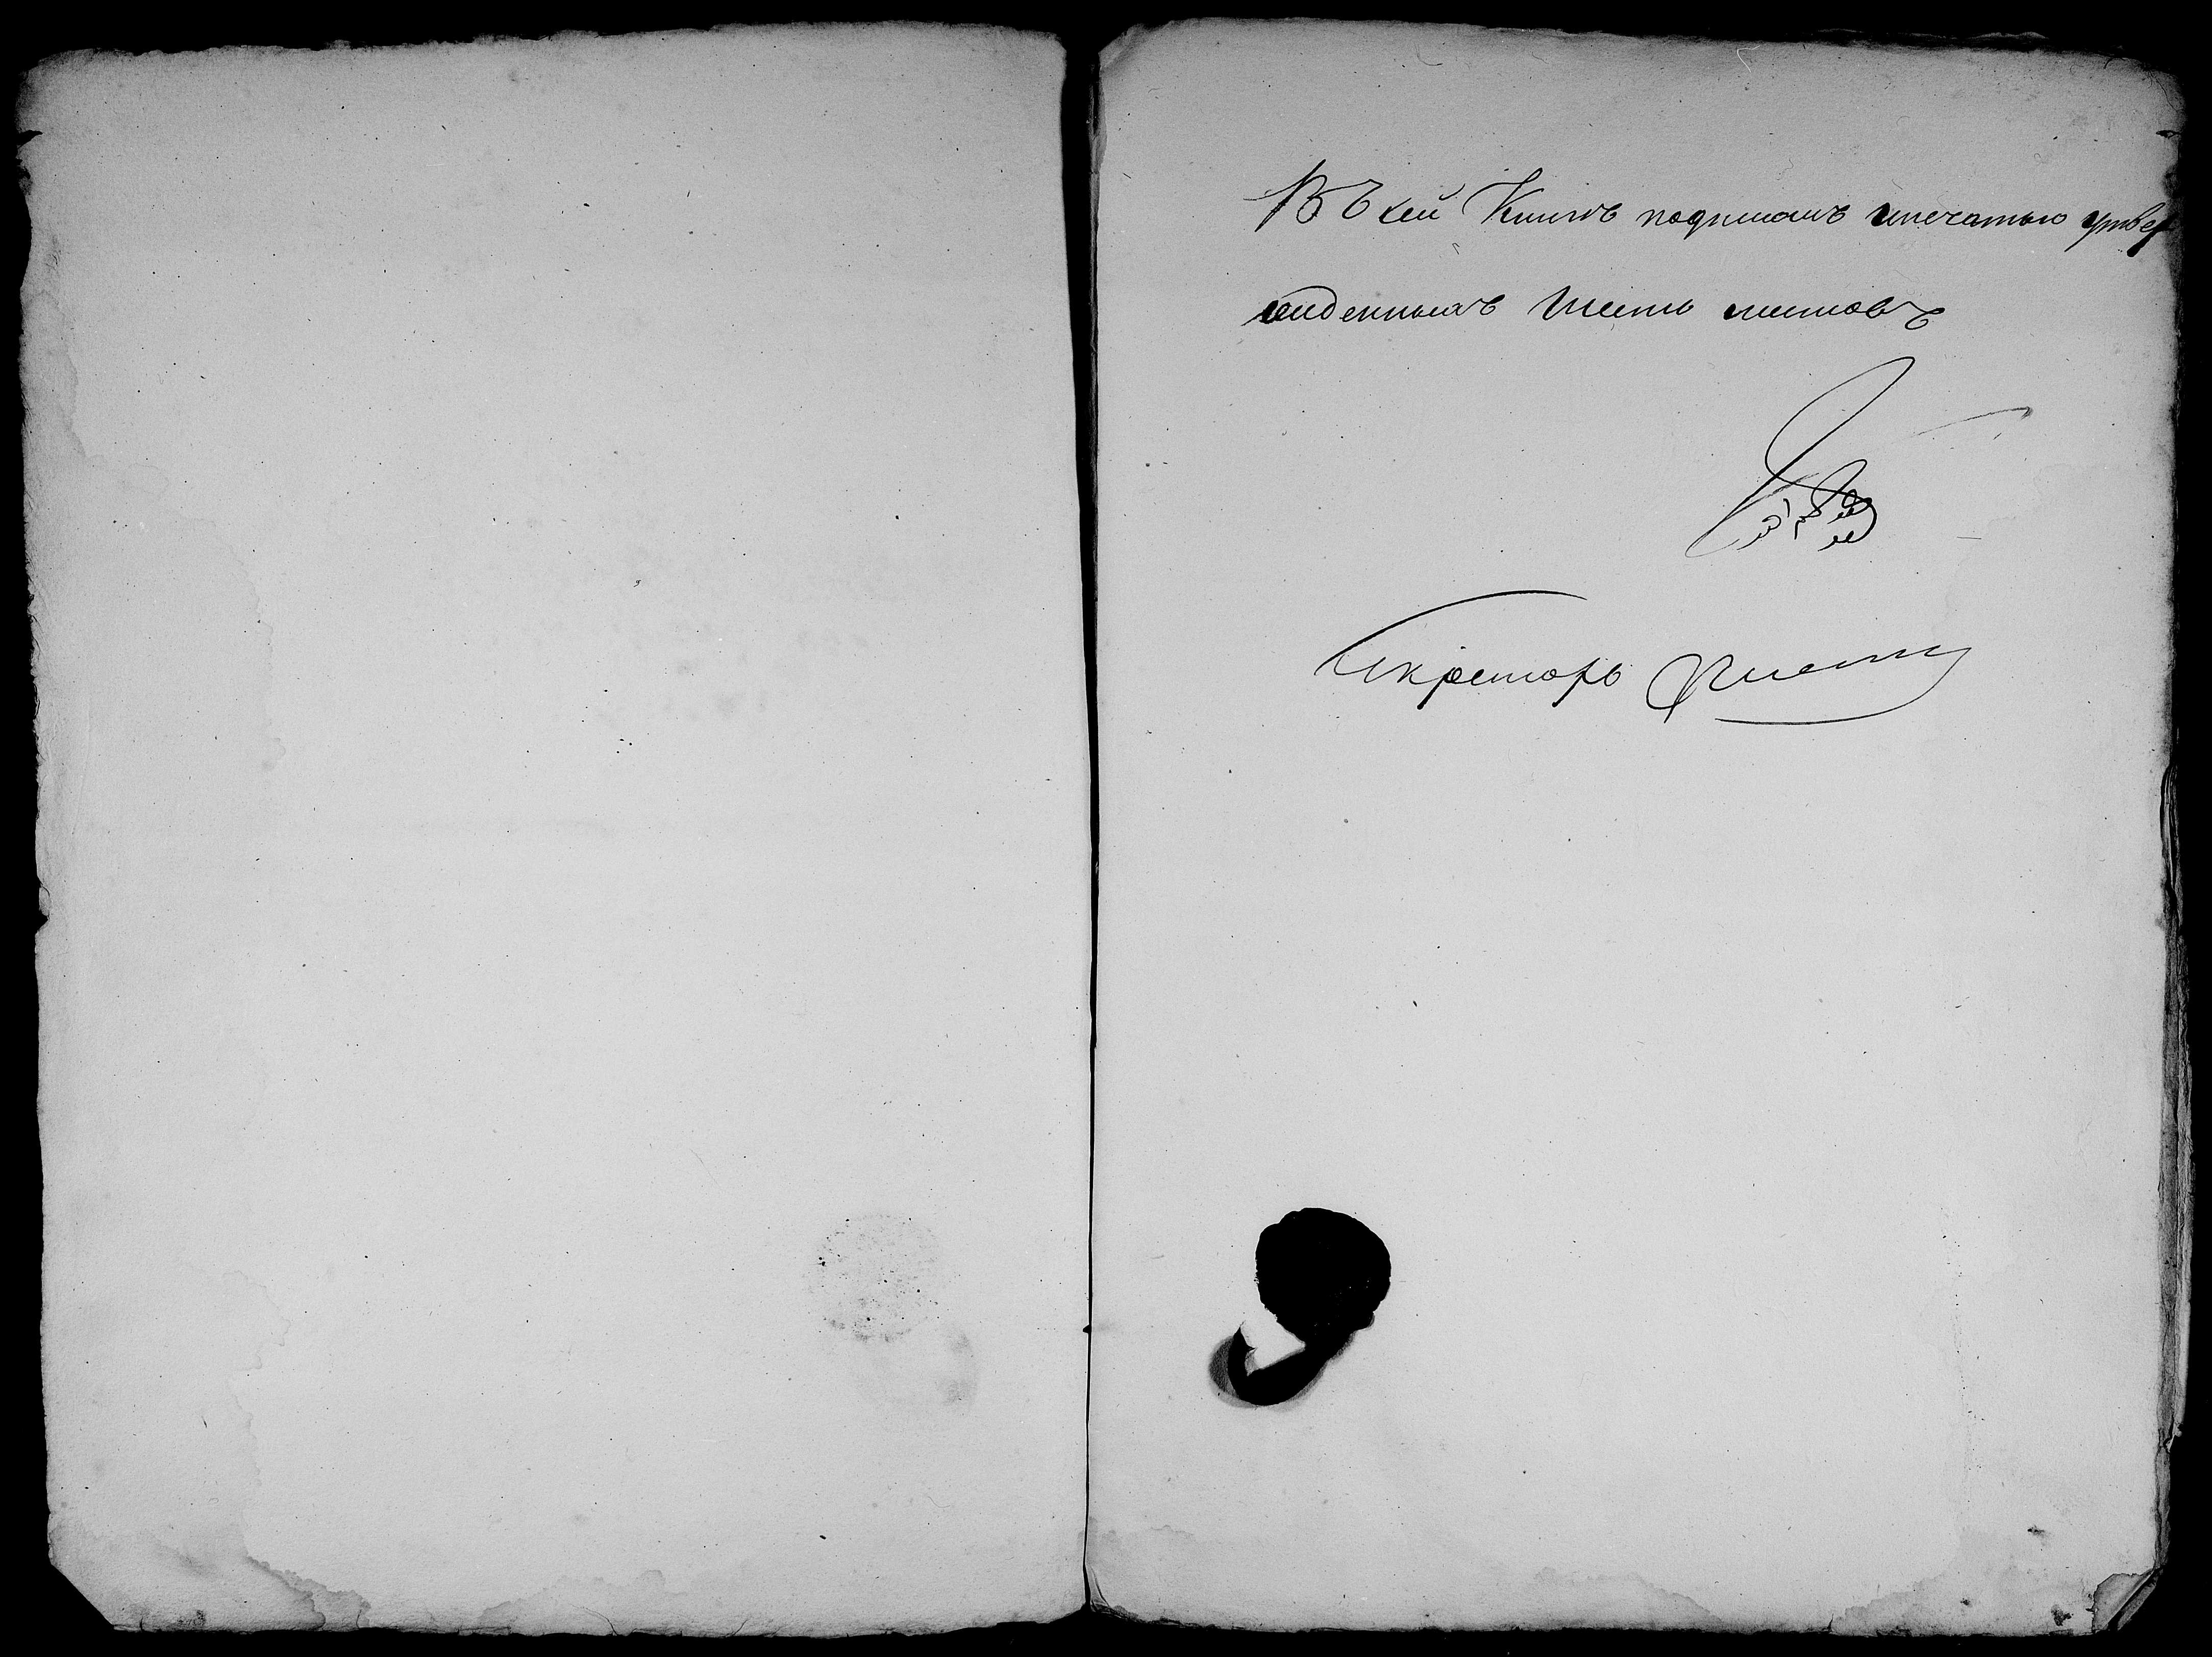 Въ сей Книгѣ подписомъ и печатью утвер
жденныхъ шесть листовъ
Секретарь